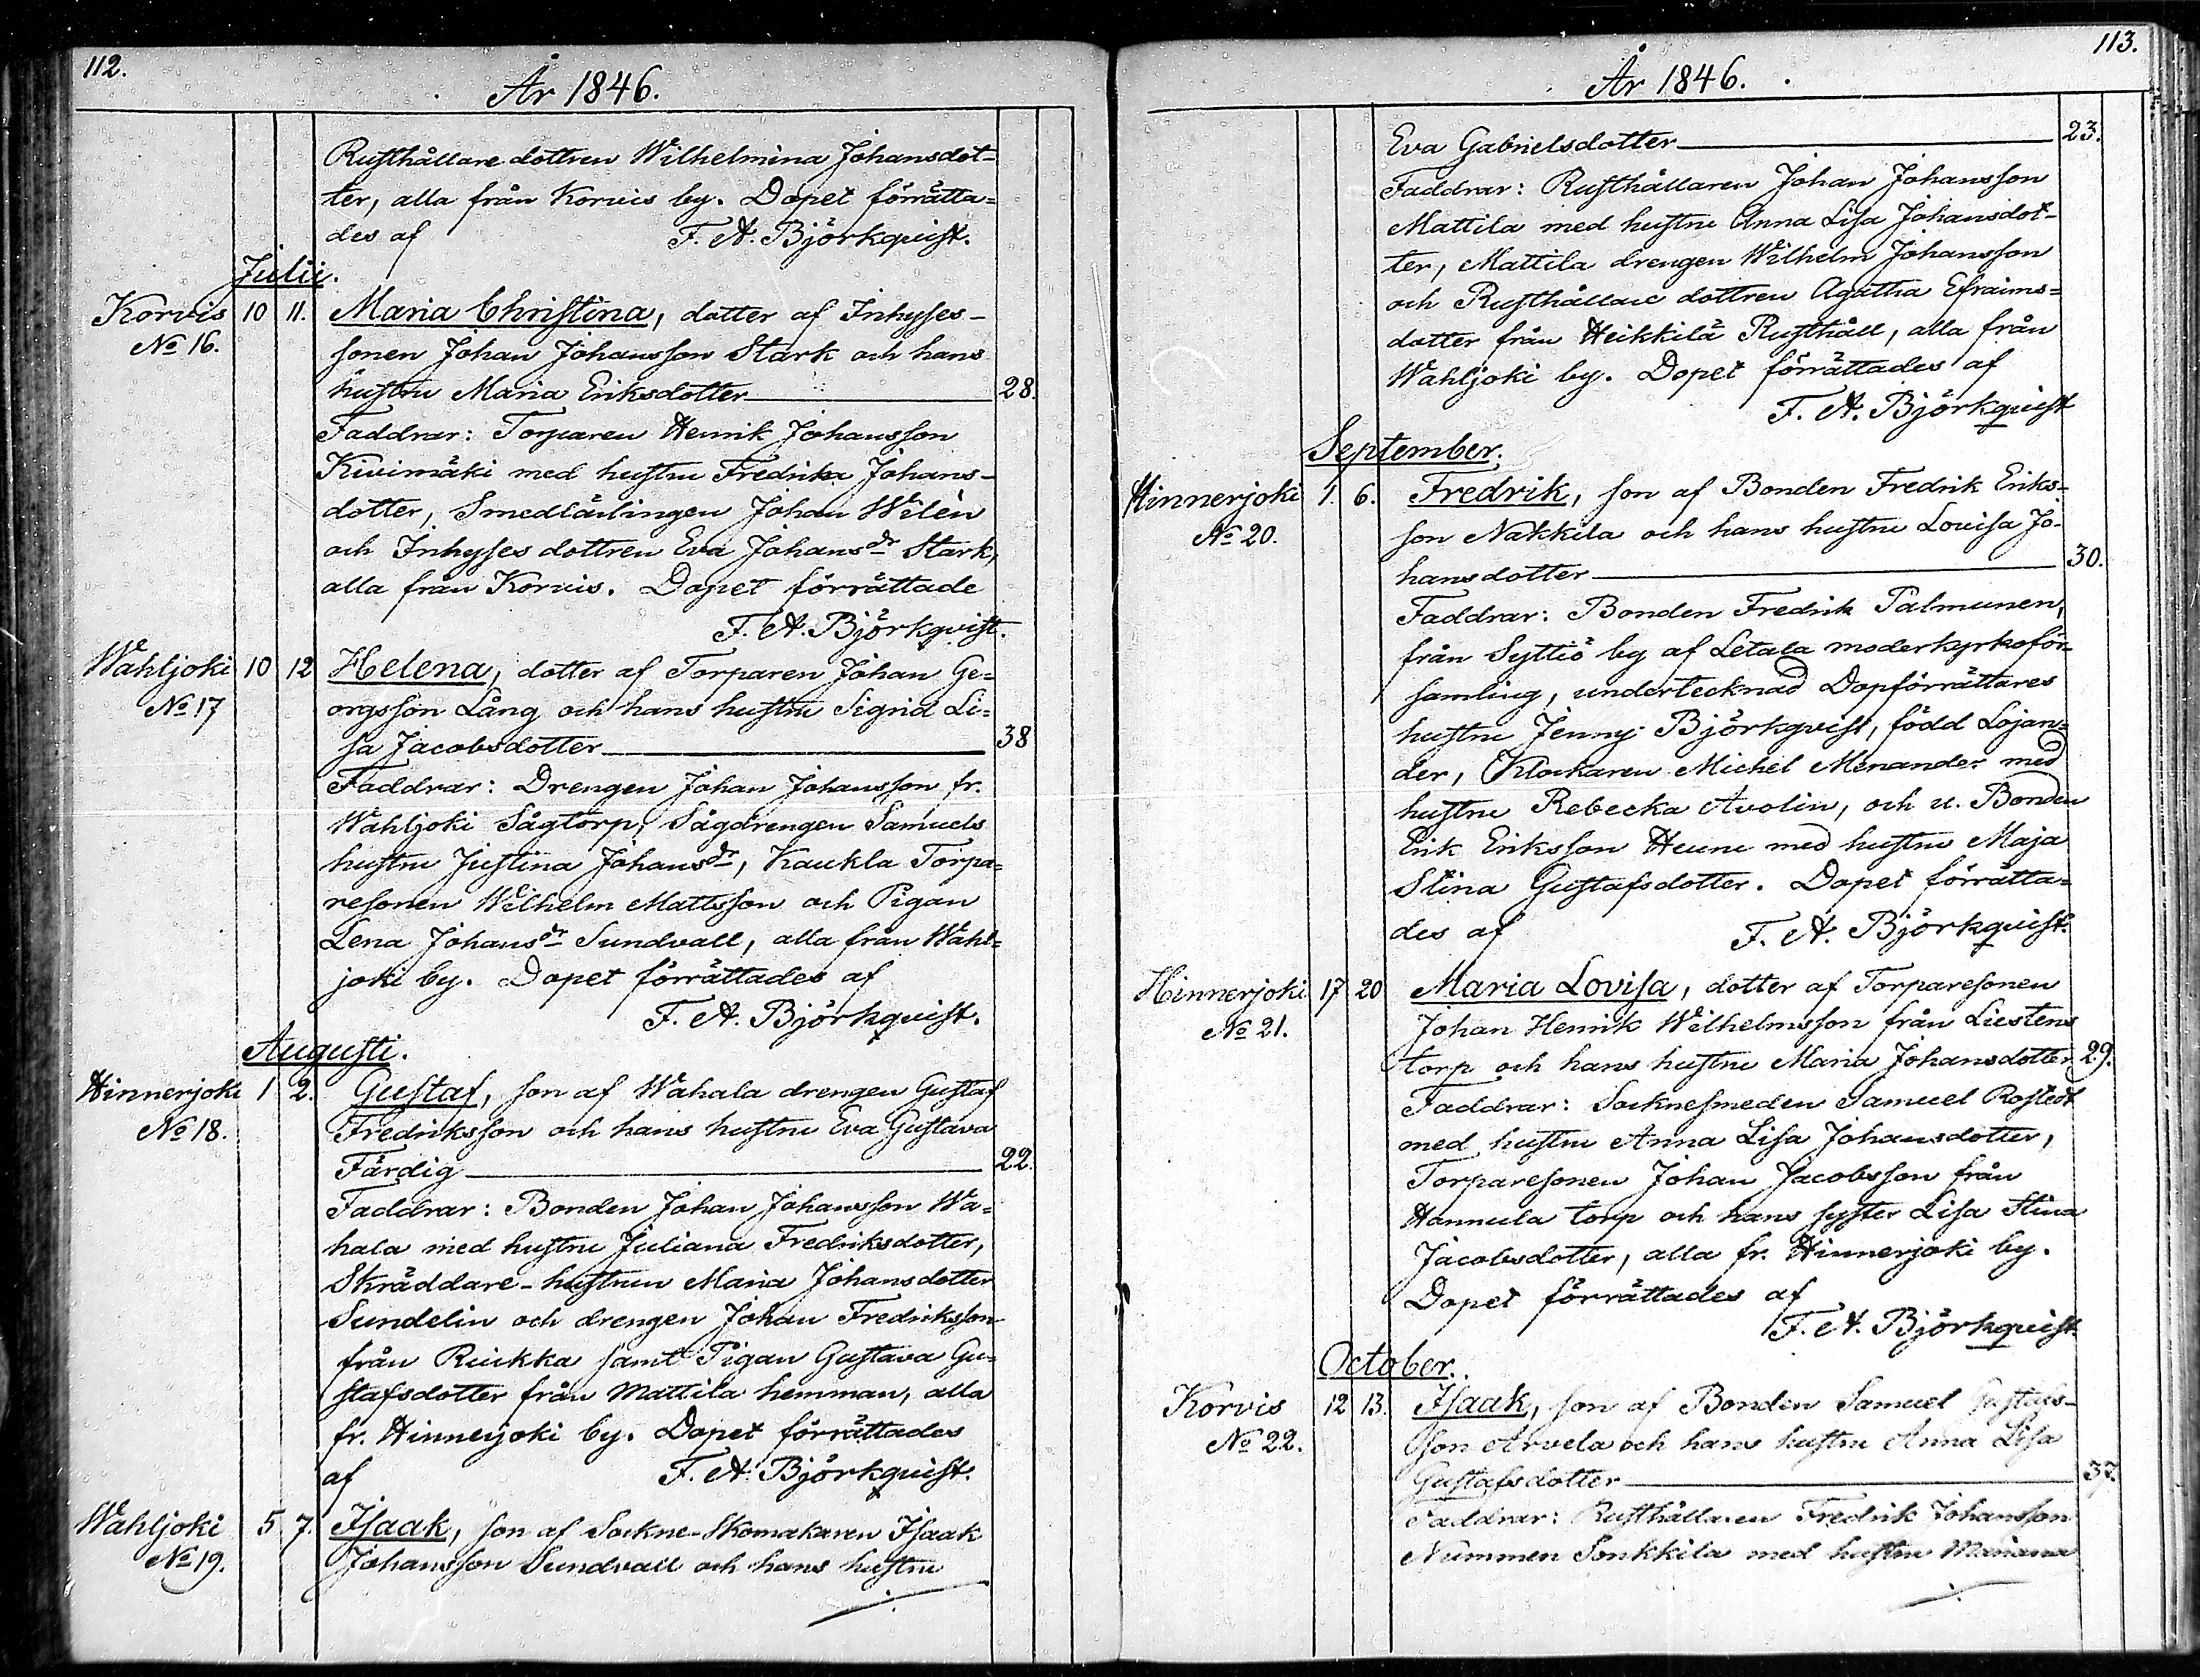 112.
År 1846.
Rusthållare dottren Wilhelmina Johansdot-
ter, alla från Korvis by. Dopet förrätta=
des af F. A. Björkqvist.
Julii.
Korvis 10 11. Maria Christina, dotter af Inhyses-
No 16. sonen Johan Johansson Stark och hans
hustru Maria Eriksdotter 28.
Faddrar: Torparen Henrik Johansson
Kivimäki med hustru Fredrika Johans-
dotter, Smedlärlingen Johan Wilén
och Inhyses dottren Eva Johansdr Stark,
alla från Korvis. Dopet förrättade
F. A. Björkqvist.
Wahljoki 10 12 Helena, dotter af Torparen Johan Ge=
No 17 orgsson Lång och hans hustru Sigrid Li=
sa Jacobsdotter 38
Faddrar: Drengen Johan Johansson fr.
Wahljoki Sågtorp, Sågdrengen Samuels
hustru Justina Johansdr, Kaukla Torpa=
resonen Wilhelm Mattsson och Pigan
Lena Johansdr Sundvall, alla från Wahl=
joki by. Dopet förrättades af
F. A. Björkqvist.
Augusti.
Hinnerjoki 1 2. Gustaf, son af Wahala drengen Gustaf
No 18. Fredriksson och hans hustru Eva Gustava
Färdig 22.
Faddrar: Bonden Johan Johansson Wa=
hala med hustru Juliana Fredriksdotter,
Skräddare-hustrun Maria Johansdotter
Sundelin och drengen Johan Fredriksson
från Ruikka samt Pigan Gustava Gu=
stafsdotter från Mattila hemman, alla
fr. Hinnerjoki by. Dopet förrättades
af F. A. Björkqvist.
Wahljoki 5 7. Isaak, son af Sockne-Skomakaren Isaak
No 19. Johansson Sundvall och hans hustru
113.
År 1846.
Eva Gabrielsdotter 23.
Faddrar: Rusthållaren Johan Johansson
Mattila med hustru Anna Lisa Johansdot-
ter, Mattila drengen Wilhelm Johansson
och Rusthållare dottren Agatha Efraims=
dotter från Heikkilä Rusthåll, alla från
Wahljoki by. Dopet förrättades af
F. A. Björkqvist
September.
Hinnerjoki 1. 6. Fredrik, son af Bonden Fredrik Eriks-
No 20. son Nakkila och hans hustru Lovisa Jo-
hansdotter 30.
Faddrar: Bonden Fredrik Palmunen,
från Syttiö by af Letala moderkyrkoför-
samling, undertecknad Dopförrättares
hustru Jenny Björkqvist, född Lojan=
der, Klockaren Michel Menander med
hustru Rebecka Avolin, och u. Bonden
Erik Eriksson Heunu med hustru Maja
Stina Gustafsdotter. Dopet förrätta=
des af F. A. Björkqvist.
Hinnerjoki 17 20 Maria Lovisa, dotter af Torparesonen
No 21. Johan Henrik Wilhelmsson från Liestens
torp och hans hustru Maria Johansdotter 29.
Faddrar: Socknesmeden Samuel Rostedt
med hustru Anna Lisa Johansdotter,
Torparesonen Johan Jacobsson från
Hannula torp och hans syster Lisa Stina
Jacobsdotter, alla fr. Hinnerjoki by.
Dopet förrättades af
F. A. Björkqvist
October.
Korvis 12 13. Isaak, son af Bonden Samuel Gustafs-
No 22. son Arvela och hans hustru Anna Lisa
Gustafsdotter 37.
Faddrar: Rusthållaren Fredrik Johansson
Nummen Sonkkila med hustru Mariana